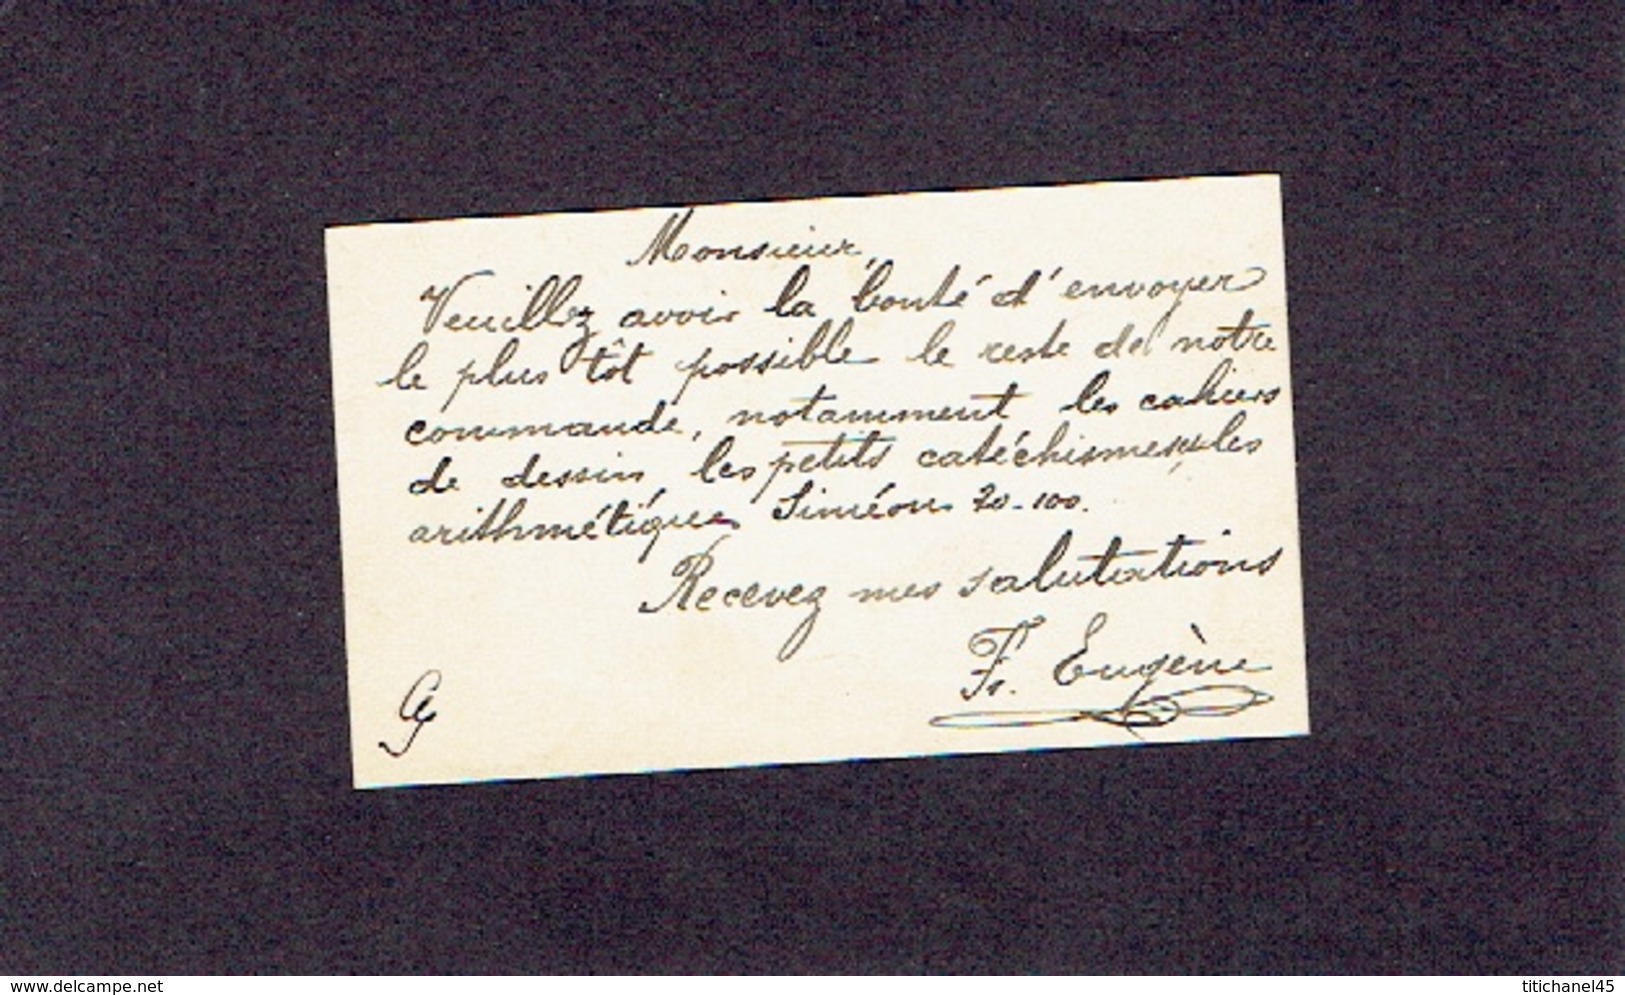 Monsieur,
Veuillez avoir la bonté d'envoyer
le plus tôt possible le reste de notre
commande, notamment les cahiers
de dessin, les petits catéchismes, les
arithmétiques Siméon 20-100.
Recevez mes salutations
Fr. Eugène
delcampe.net
titichanel45